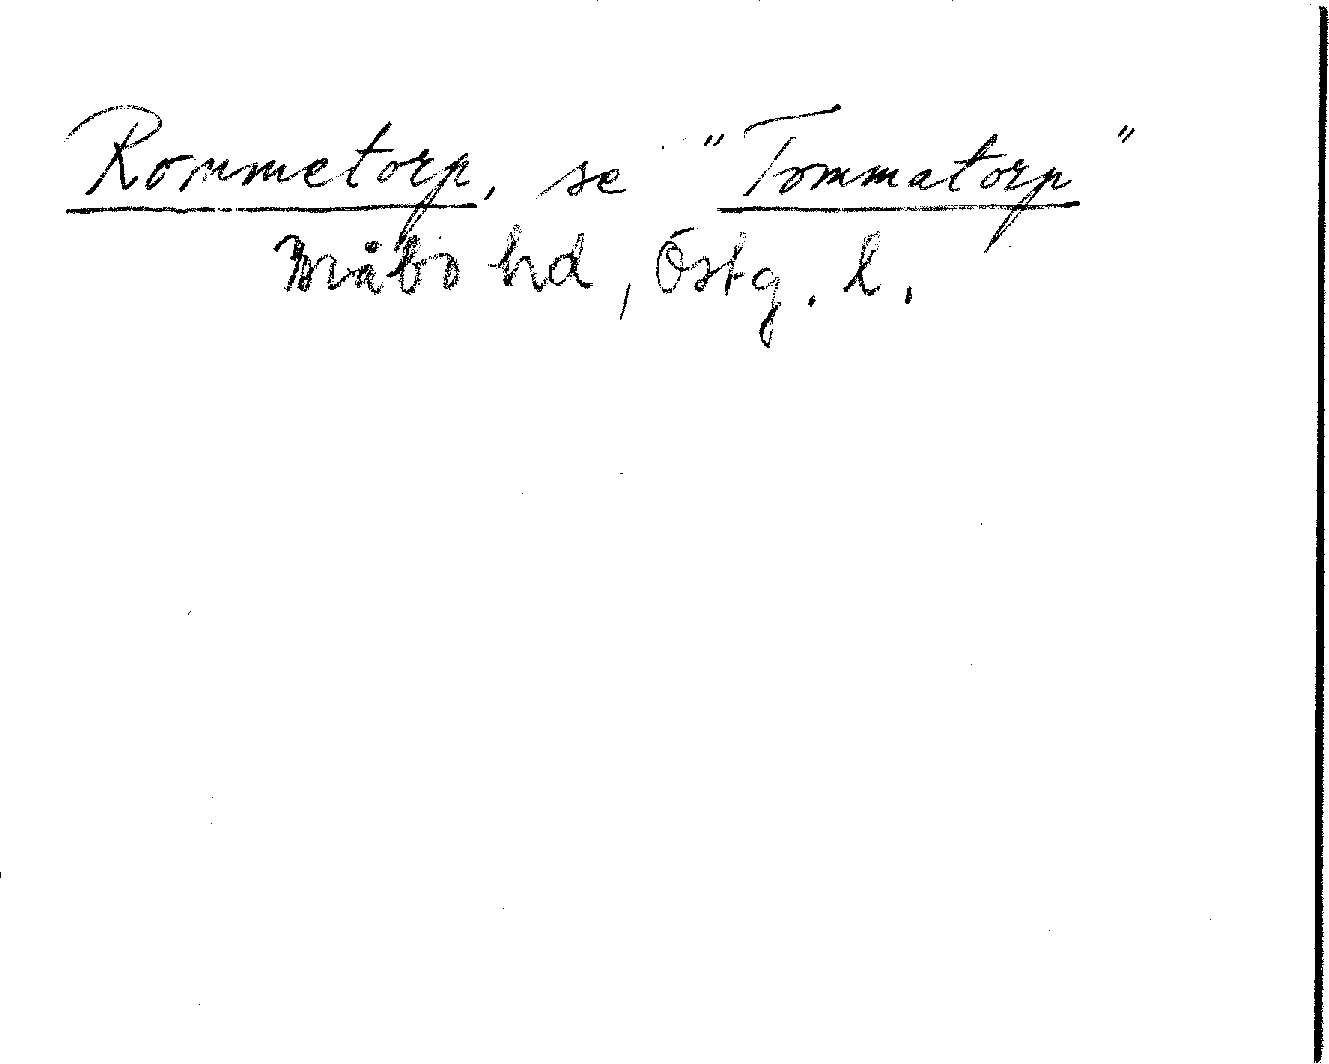 Rommetorp, se "Tommatorp"
Bråbo hd, Östg. l.